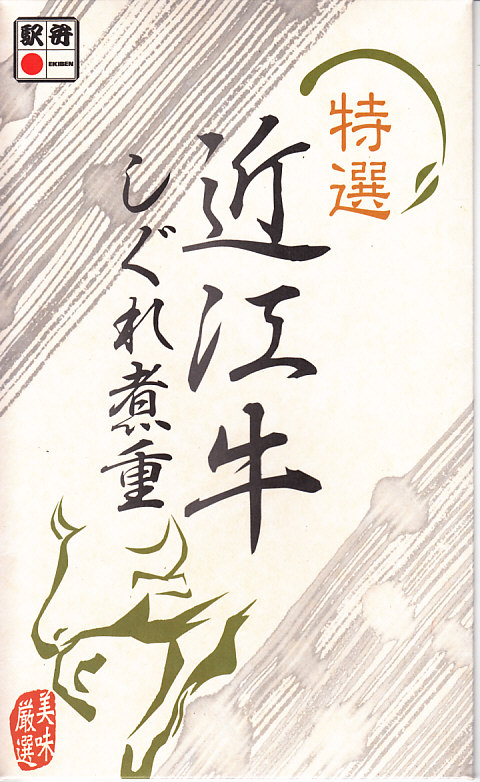 駅弁
EKIBEN
特選
近江牛
しぐれ煮重
美味
厳選